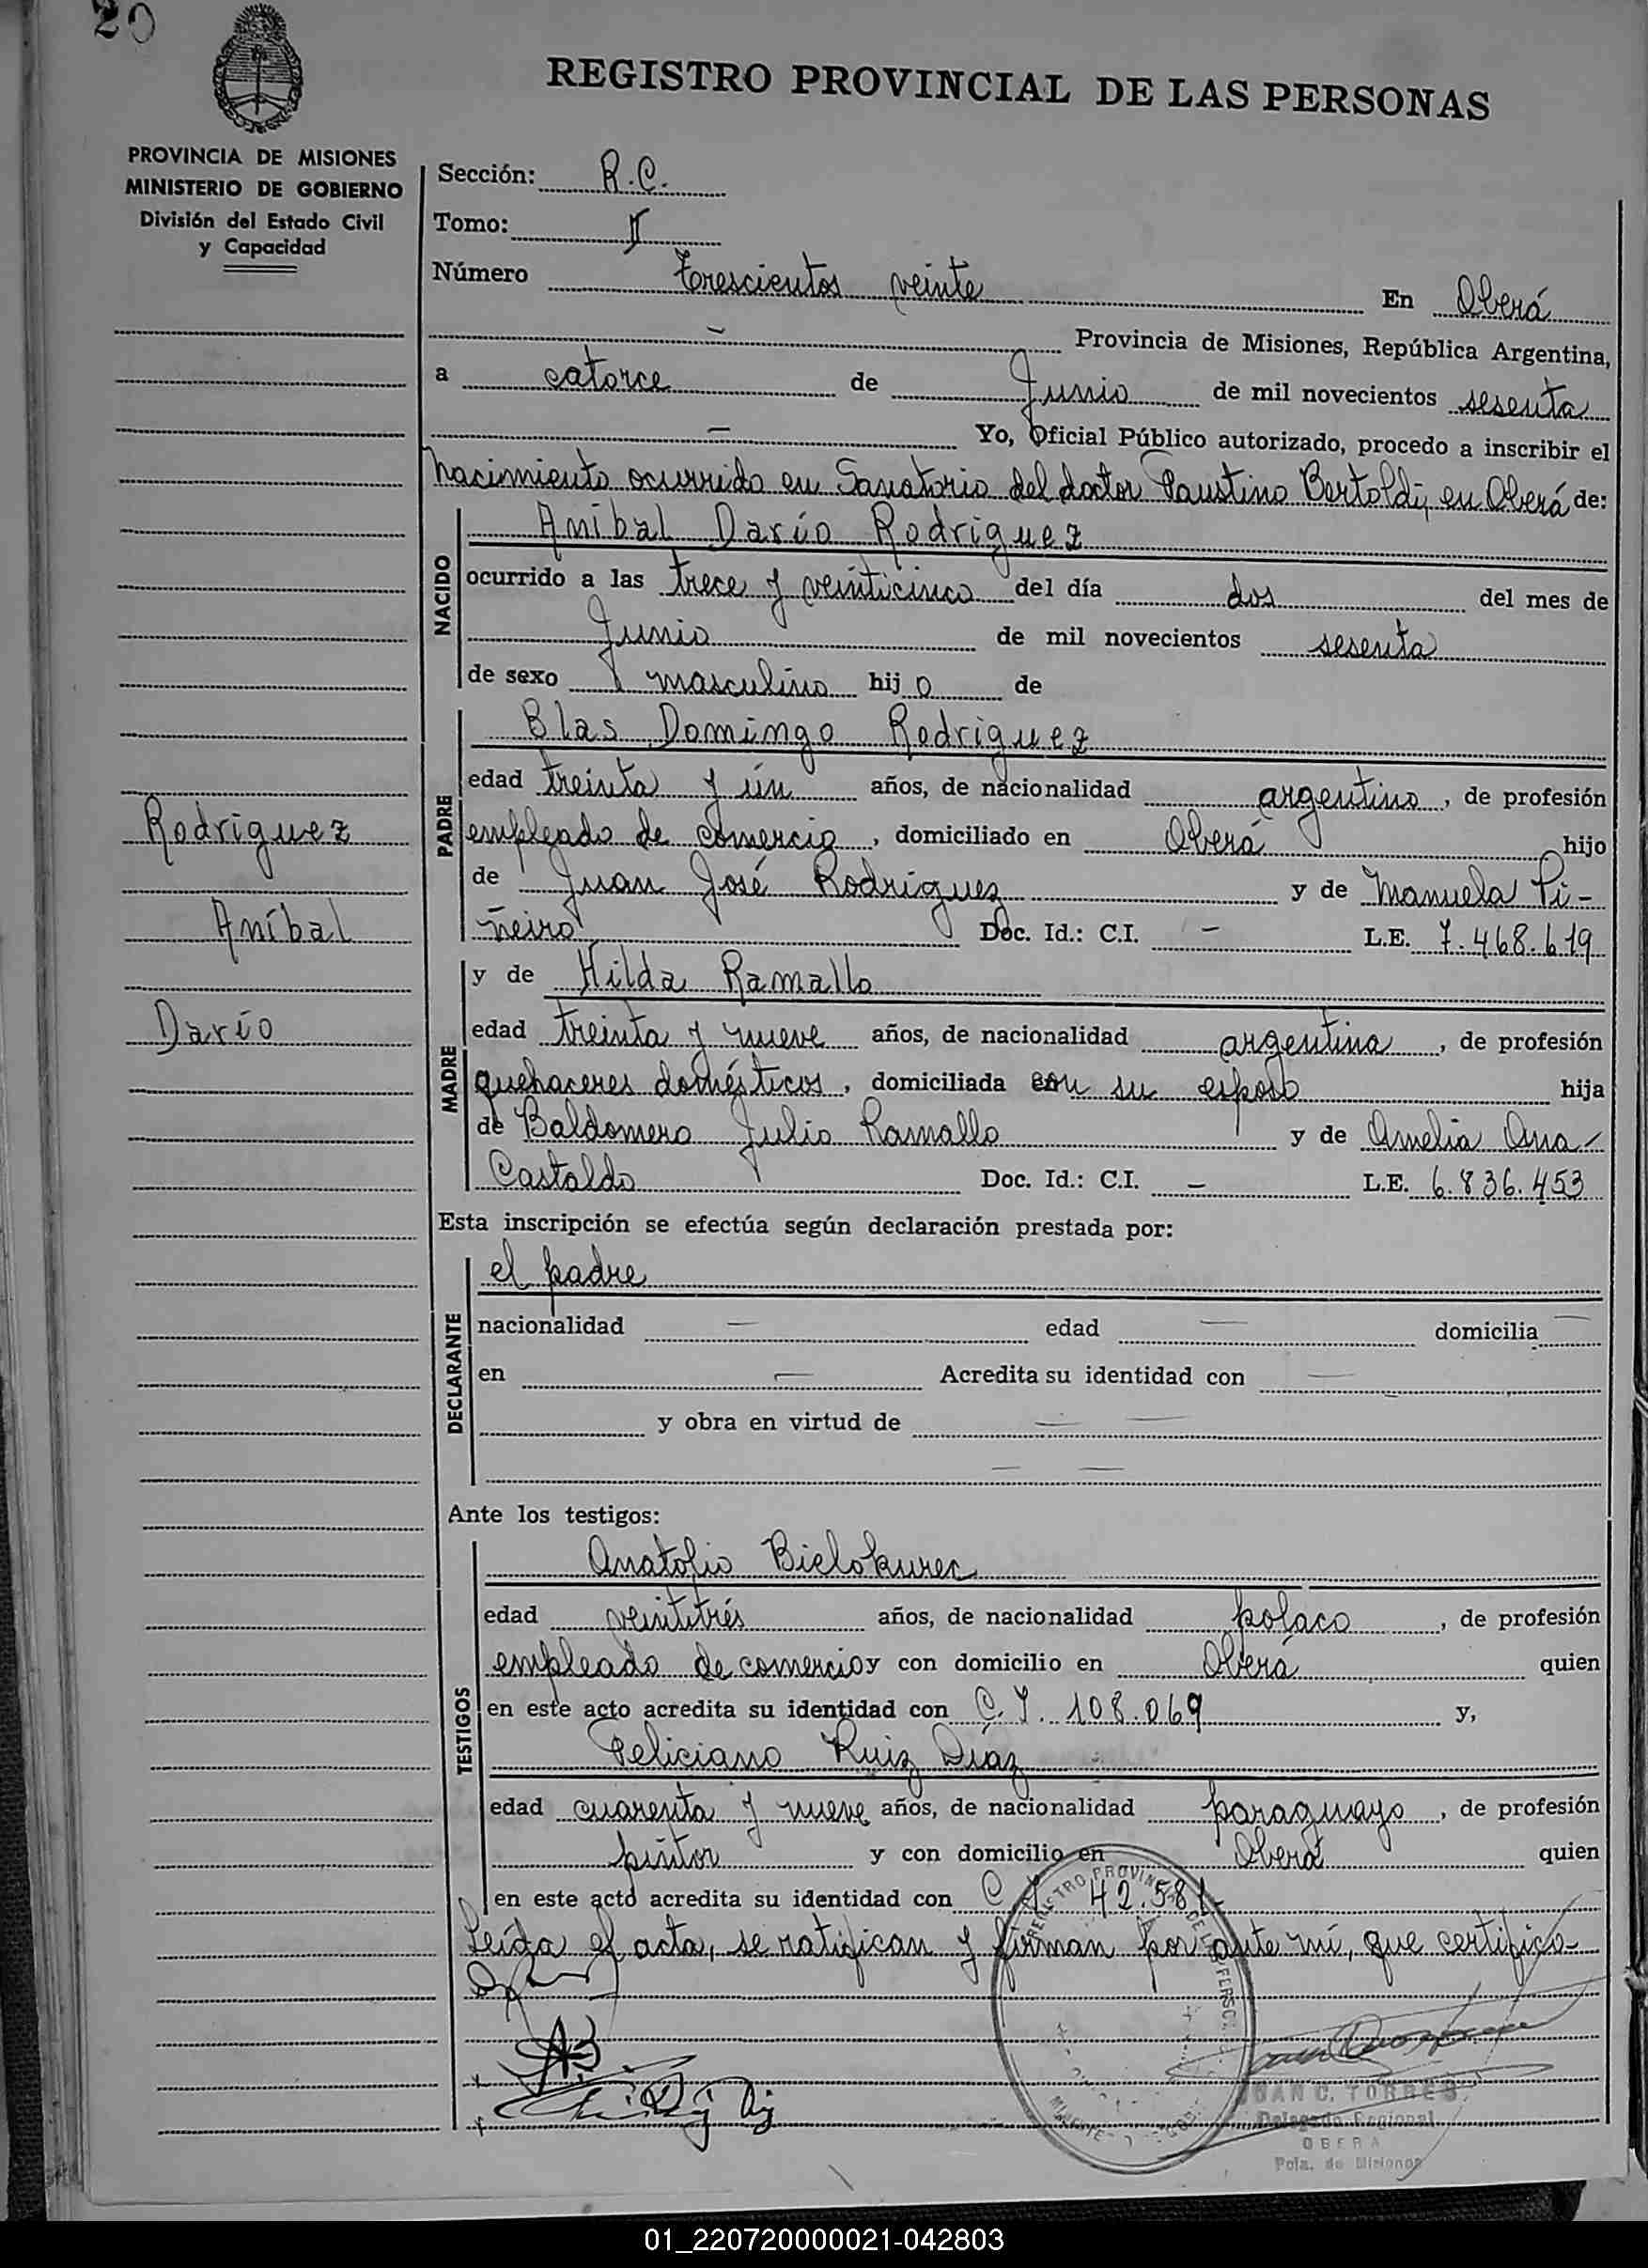 20
REGISTRO PROVINCIAL DE LAS PERSONAS
PROVINCIA DE MISIONES
MINISTERIO DE GOBIERNO
División del Estado Civil
y Capacidad
Sección: R.C.
Tomo: I
Número trescientos veinte En Oberá
— Provincia de Misiones, República Argentina,
a catorce de Junio de mil novecientos sesenta
— Yo, Oficial Público autorizado, procedo a inscribir el
nacimiento ocurrido en Sanatorio del doctor Faustino Bertoldi, en Oberá de:
NACIDO
Aníbal Darío Rodriguez
ocurrido a las trece y veinticinco del día dos del mes de
Junio de mil novecientos sesenta
de sexo masculino hijo de
PADRE
Blas Domingo Rodriguez
edad treinta y ún años, de nacionalidad argentino, de profesión
empleado de comercio, domiciliado en Oberá hijo
de Juan José Rodriguez y de Manuela Pi-
ñeiro Doc. Id.: C.I. — L.E. 7.468.619
Rodriguez
Aníbal
Darío
MADRE
y de Hilda Ramallo
edad treinta y nueve años, de nacionalidad argentina, de profesión
quehaceres domésticos, domiciliada con su esposo hija
de Baldomero Julio Ramallo y de Amelia Ana
Castaldo Doc. Id.: C.I. — L.E. 6.836.453
Esta inscripción se efectúa según declaración prestada por:
DECLARANTE
el padre
nacionalidad — edad — domicilia —
en — Acredita su identidad con —
y obra en virtud de — —
— —
Ante los testigos:
TESTIGOS
Anatolio Bielokurec
edad veintitrés años, de nacionalidad polaco, de profesión
empleado de comercio y con domicilio en Oberá quien
en este acto acredita su identidad con C.I. 108.069 y,
Feliciano Ruiz Díaz
edad cuarenta y nueve años, de nacionalidad paraguayo, de profesión
pintor y con domicilio en Oberá quien
en este acto acredita su identidad con C.I. 42.581
Leída el acta, se ratifican y firman por ante mí, que certifico-
REGISTRO PROVINCIAL DE LAS PERSO
JUAN C. TORRES
Delegado Regional
OBERA
Pcia. de Misiones
01_220720000021-042803